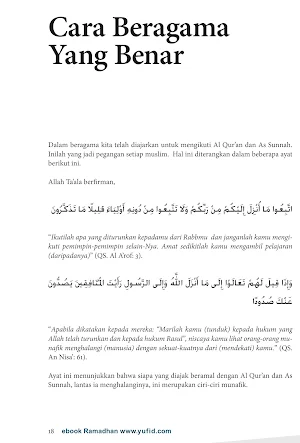 Cara Beragama
Yang Benar
Dalam beragama kita telah diajarkan untuk mengikuti Al Qur'an dan As Sunnah.
Inilah yang jadi pegangan setiap muslim. Hal ini diterangkan dalam beberapa ayat
berikut ini.
Allah Ta'ala berfirman,
اتَّبِعُوا مَا أُنْزِلَ إِلَيْكُمْ مِنْ رَبِّكُمْ وَلَا تَتَّبِعُوا مِنْ دُونِهِ أَوْلِيَاءَ قَلِيلًا مَا تَذَكَّرُونَ
"Ikutilah apa yang diturunkan kepadamu dari Rabbmu dan janganlah kamu mengi-
kuti pemimpin-pemimpin selain-Nya. Amat sedikitlah kamu mengambil pelajaran
(daripadanya)" (QS. Al A'rof: 3).
وَإِذَا قِيلَ لَهُمْ تَعَالَوْا إِلَى مَا أَنْزَلَ اللَّهُ وَإِلَى الرَّسُولِ رَأَيْتَ الْمُنَافِقِينَ يَصُدُّونَ
عَنْكَ صُدُودًا
"Apabila dikatakan kepada mereka: "Marilah kamu (tunduk) kepada hukum yang
Allah telah turunkan dan kepada hukum Rasul", niscaya kamu lihat orang-orang mu-
nafik menghalangi (manusia) dengan sekuat-kuatnya dari (mendekati) kamu." (QS.
An Nisa': 61).
Ayat ini menunjukkan bahwa siapa yang diajak beramal dengan Al Qur'an dan As
Sunnah, lantas ia menghalanginya, ini merupakan ciri-ciri munafik.
18 ebook Ramadhan www.yufid.com